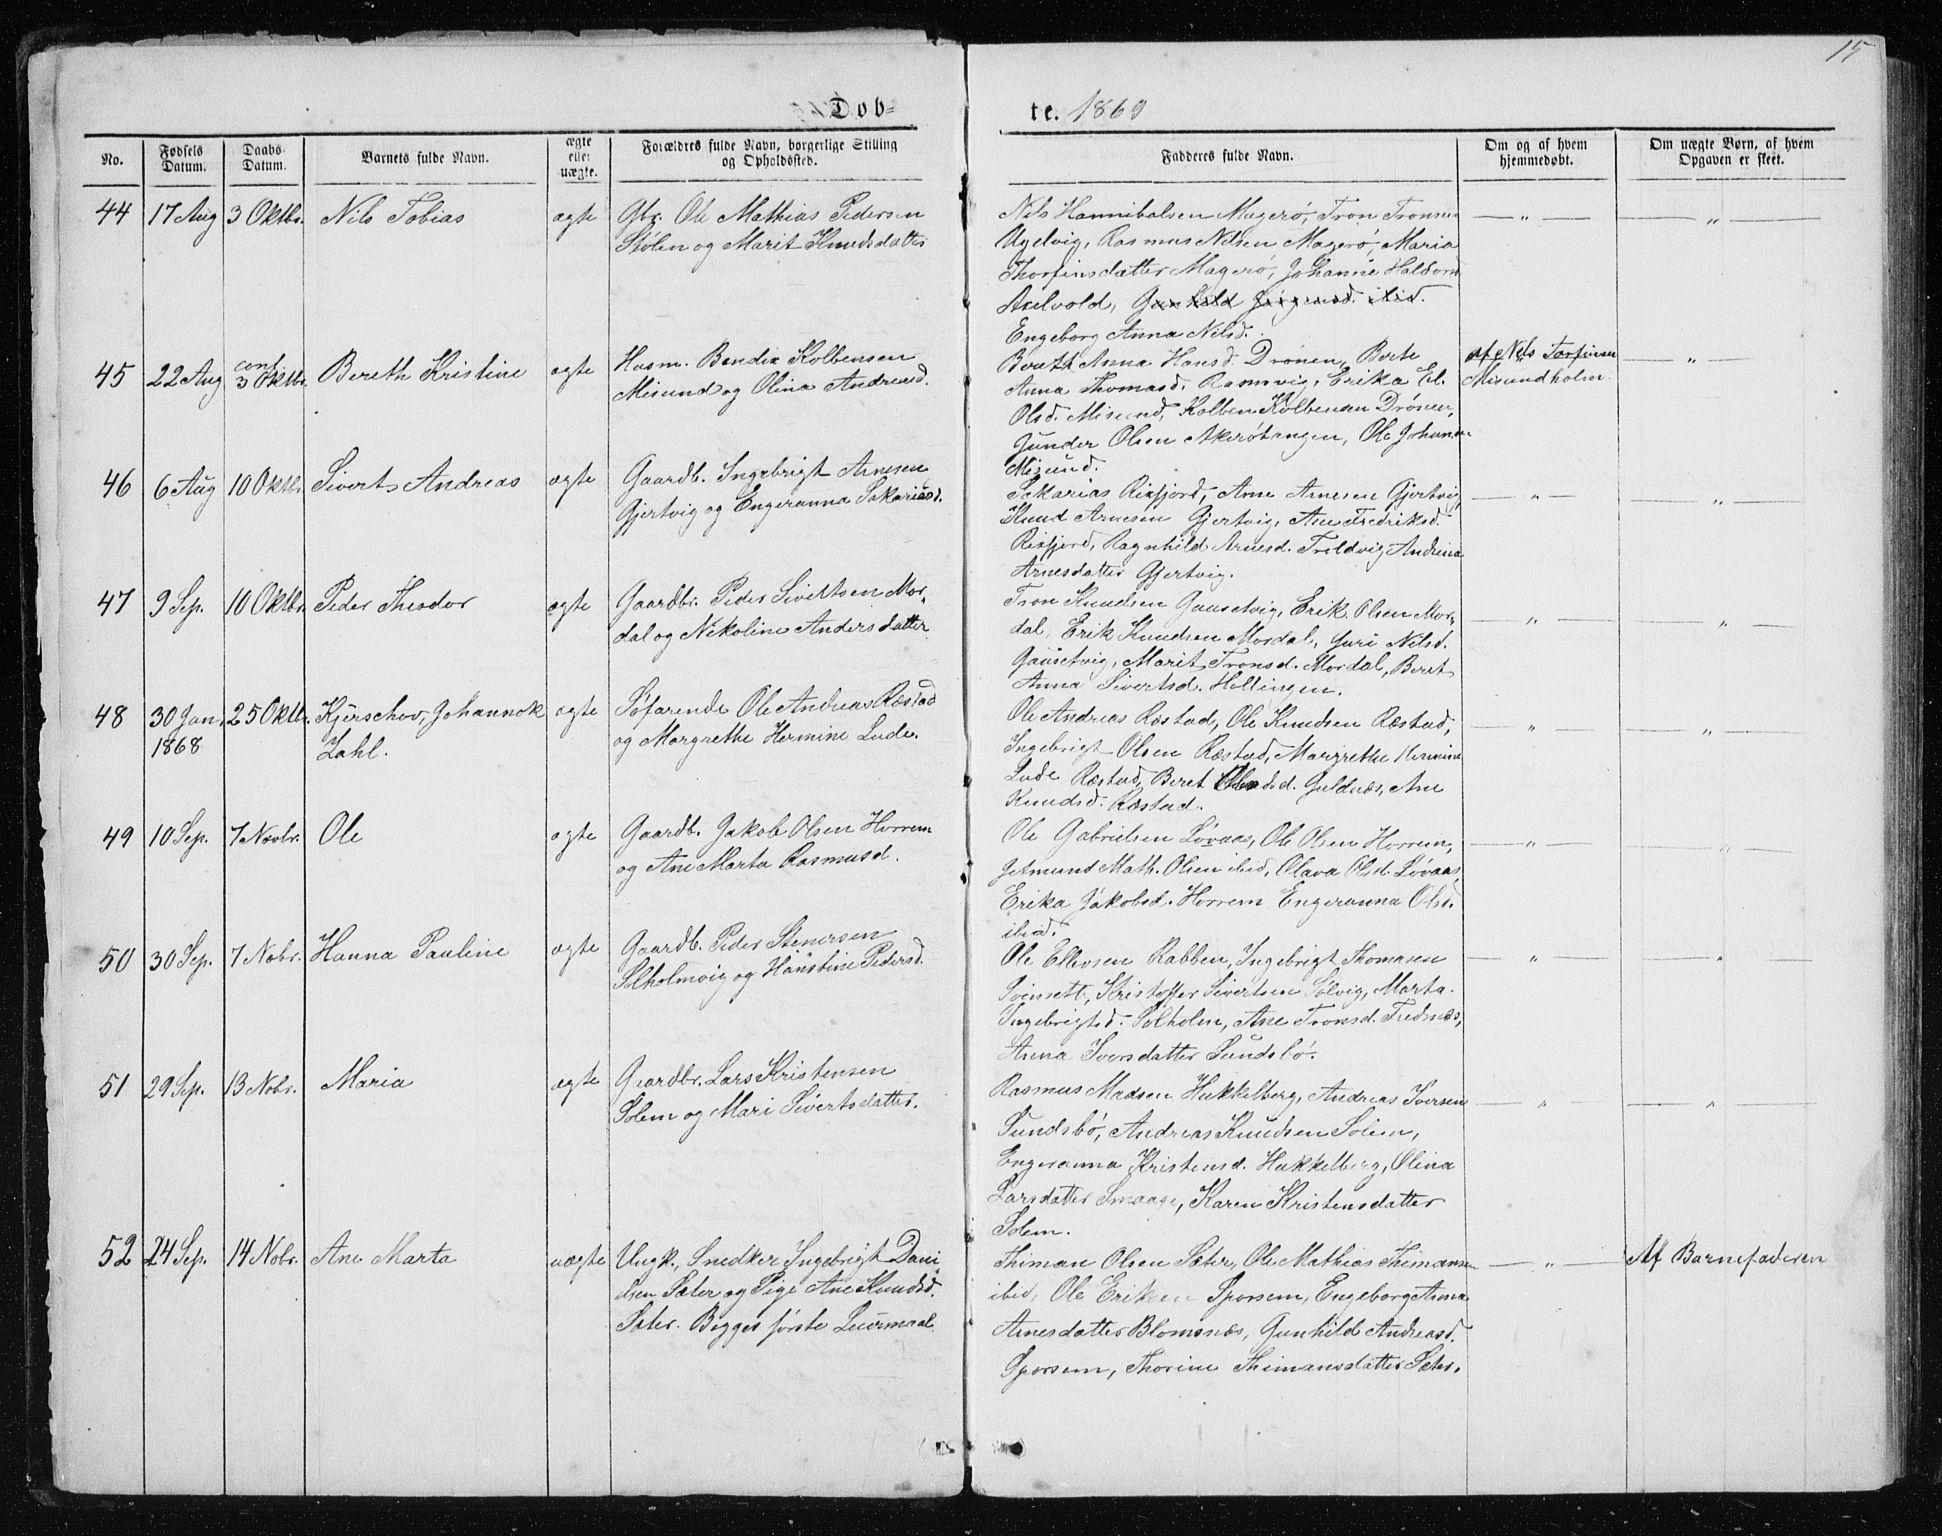 15
Døb-
te. 1869
No.
Fødsels Datum.
Daabs Datum.
Barnets fulde Navn.
ægte eller uægte.
Forældres fulde Navn, borgerlige Stilling og Opholdssted.
Fadderes fulde Navn.
Om og af hvem hjemmedøbt.
Om uægte Børn, af hvem Opgaven er skeet.
44 17 Aug 3 Oktbr. Nils Tobias ægte Gbr. Ole Mathias Pedersen
Stølen og Marit Knudsdatter
Nils Hannibalsen Magerø, Tron Tronsen
Ugelvig, Rasmus Nilsen Magerø, Maria
Thorfinsdatter Magerø, Johanne Haldors
Axelvold, Gunhild ibid.
Engeborg Anna Nilsd.
45 22 Aug conf. 3 Oktbr. Bereth Kristine ægte Husm. Bendix Kolbensen
Misund og Olina Andreasd.
Bereth Anna Hansd. Drønen, Berte
Anna Thomasd. Ramsvig, Erika El.
Olsd. Misund, Kolben Kolbensen Drønen,
Gunder Olsen Akerøtangen, Ole Johansen
Misund.
af Nils Torfinsen
Misundholm.
46 6 Aug 10 Oktbr. Sivert Andreas ægte Gaardb. Ingebrigt Arnesen
Gjertvig og Engeranna Sakariasd.
Sakarias Rixfjord, Arne Arnesen Gjertvig,
Knud Arnesen Gjertvig, Ane Fredriksd.
Rixfjord, Ragnhild Arnesd. Troldvig, Andrina
Arnesdatter Gjertvig.
47 9 Sep. 10 Oktbr. Peder Theodor ægte Gaardbr. Peder Sivertsen Mor-
dal og Nekoline Andersdatter
Tron Knudsen Gausetvig, Erik Olsen Mor-
dal, Erik Knudsen Mordal, Guri Nilsd.
Gausetvig, Marit Tronsd. Mordal, Beret
Anna Sivertsd. Hellingen.
48 30 Jan. 25 Oktbr. Kjerschov, Johannok ægte Søfarende Ole Andreas Ræstad
1868 Zahl. og Margrethe Hermine Lude.
Ole Andreas Ræstad, Ole Knudsen Ræstad,
Ingebrigt Olsen Ræstad, Margrethe Hermine
Lude Ræstad, Beret Guldnæs, Ane
Knudsd. Ræstad.
49 10 Sep. 7 Novbr. Ole ægte Gaardb. Jakob Olsen Horrem
og Ane Marta Rasmusd.
Ole Gabrielsen Løvaas, Ole Olsen Horrem,
Getmund Math. Olsen ibid, Olava Olsd. Løvaas,
Erika Jakobsd. Horrem, Engeranna Olsd.
ibid.
50 30 Sep. 7 Nobr. Hanna Pauline ægte Gaardb. Peder Stenersen
Solholmvig og Haustine Pedersd.
Ole Ellevsen Rabben, Ingebrigt Thomasen
Svinsett, Kristoffer Sivertsen Sølvig, Marta
Ingebrigtsd. Solholm, Ane Tronsd. Frednæs,
Anna Iversdatter Sundsbø.
51 29 Sep. 13 Nobr. Maria ægte Gaardbr. Lars Kristensen
Solem og Mari Sivertsdatter.
Rasmus Madsen Hukkelberg, Andreas Iversen
Sundsbø, Andreas Knudsen Solem,
Engeranna Kristensd. Hukkelberg, Olina
Larsdatter Smaage, Karen Kristensdatter
Solem.
52 24 Sep. 14 Nobr. Ane Marta uægte Ungk., Snedker Ingebrigt Dani-
elsen Sæter og Pige Ane Knudsd.
Sæter. Begges første Leiermaal
Thiman Olsen Sæter, Ole Mathias Thimansen
ibid, Ole Eriksen Sporsem, Engeborg Anna
Arnesdatter Blomsnæs, Gunhild Andreasd.
Sporsem, Thorine Thimansdatter Sæter.
Af Barnefaderen